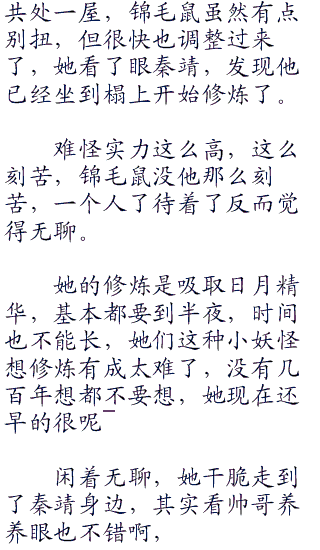 共处一屋，锦毛鼠虽然有点
别扭，但很快也调整过来
了，她看了眼秦靖，发现他
已经坐到榻上开始修炼了。
难怪实力这么高，这么
刻苦，锦毛鼠没他那么刻
苦，一个人了待着了反而觉
得无聊。
她的修炼是吸取日月精
华，基本都要到半夜，时间
也不能长，她们这种小妖怪
想修炼有成太难了，没有几
百年想都不要想，她现在还
早的很呢¯
闲着无聊，她干脆走到
了秦靖身边，其实看帅哥养
养眼也不错啊，